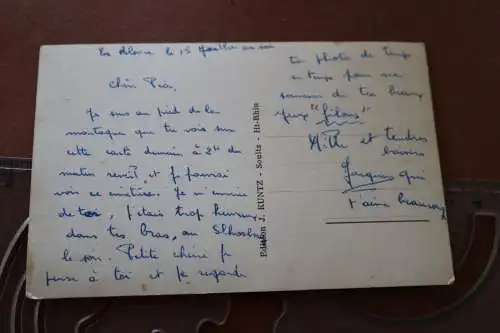 le 15 Juillet au soir
Chère Pia,
Je suis au pied de la
montagne que tu vois sur
cette carte demain à 2h du
matin réveil et je pourrai
voir ce cimetière. Je m'ennuie
de toi, j'étais trop heureux
dans tes bras, au
le soir. Petite chérie je
pense à toi et je regarde
Edition J. KUNTZ - Soultz - Ht-Rhin
ta photo de temps
en temps pour me
souvenir de tes beaux
yeux "filous"
et tendres
baisers
Jacques qui
t'aime beaucoup